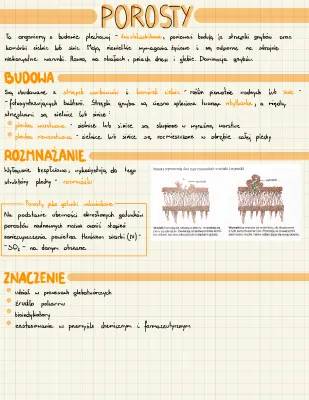 POROSTY
To organizmy o budowie plechowej - dwuskładnikowe, ponieważ budują je strzępki grzybów oraz
komórki sinic lub Mają niewielkie wymagania życiowe i są odporne na skrajnie
niekorzystne warunki. Rosną na skałach, pniach drzew i glebie. Dominuje grzybnia.
BUDOWA
Są zbudowane z strzępek workowców i komórek zielenic - różni powiatne rodnych lub sinic -
- fotosyntetyzujących bakterii. Strzępki grzyba są ciasno splecione tworząc a między
strzępkami są zielenice lub sinice:
plecha warstwowa - zielenice lub sinice są skupione w wyraźną warstwę
plecha niewarstwowa - zielenice lub sinice są rozmieszczone w obrębie całej plechy
ROZMNAŻANIE
Wyłącznie bezpłciowo, wykorzystują do tego
struktury plechy - rozmnóżki
Porosty jako gatunki wskaźnikowe
Na podstawie obecności określonych gatunków
porostów nadrzewnych można ocenić stopień
zanieczyszczenia powietrza tlenkiem siarki (IV) -
- SO₂ - na danym obszarze.
ZNACZENIE
udział w procesach glebotwórczych
źródło pokarmu
bioindykatory
zastosowanie w przemyśle chemicznym i farmaceutycznym